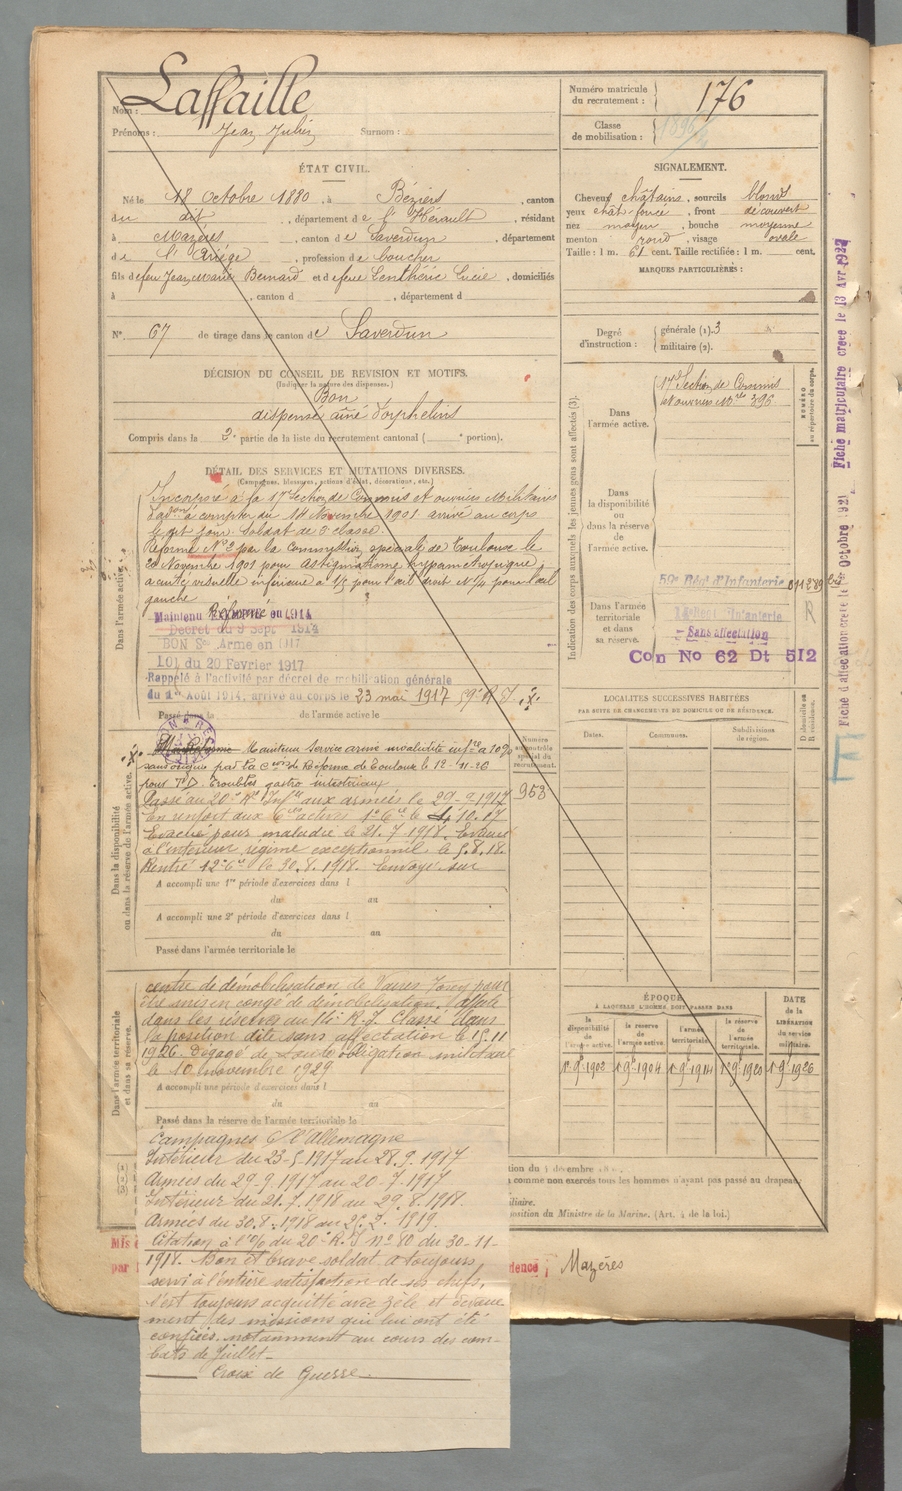 Nom : Laffaille
Prénoms : Jean Julien Surnom :
Numéro matricule du recrutement : 176
Classe de mobilisation : 1896
ÉTAT CIVIL.
Né le 18 Octobre 1880, à Béziers, canton
du dit, département de l'Hérault, résidant
à Mazères, canton de Saverdun, département
de l'Ariège, profession de boucher
fils de feu Jean Marie Bernard et de feue Lucie, domiciliés
à , canton d , département d
N° 67 de tirage dans le canton de Saverdun
SIGNALEMENT.
Cheveux châtains, sourcils blonds
yeux chât. foncé, front découvert
nez moyen, bouche moyenne
menton rond, visage ovale
Taille : 1 m. 61 cent. Taille rectifiée : 1 m. cent.
MARQUES PARTICULIÈRES :
Degré d'instruction : générale (1). 3
militaire (2).
DÉCISION DU CONSEIL DE REVISION ET MOTIFS.
(Indiquer la nature des dispenses.)
Bon
dispensé aîné d'orphelins
Compris dans la 2e partie de la liste du recrutement cantonal ( e portion).
DÉTAIL DES SERVICES ET MUTATIONS DIVERSES.
(Campagnes, blessures, actions d'éclat, décorations, etc.)
Dans l'armée active.
Incorporé à la 17e Section de Commis et ouvriers Militaires
d'adon à compter du 14 Novembre 1901 arrivé au corps
le dit jour. Soldat de 2e classe.
Réformé N° 2 par la Commission spéciale de Toulouse le
20 Novembre 1901 pour Astigmatisme hypermétropique,
acuité visuelle inférieure à 1/2 pour l'œil droit 1/4 pour l'œil
gauche
Maintenu Réformé en 1914
Décret du 9 Sept 1914
BON Sce Armé en 1917
LOI du 20 Février 1917
Rappelé à l'activité par décret de mobilisation générale
du 1er Août 1914, arrivé au corps le 23 mai 1917 59e R I
Passé dans la de l'armée active le
Dans la disponibilité ou dans la réserve de l'armée active.
Maintenu Service armé invalidité infre à 10%
par la Con de Réforme de Toulouse le 12-11-26
pour P.D. Troubles gastro intestinaux
Passé au 20e Rt Infie aux armées le 29-9-1917
En renfort aux Cies actives 1e Cie le 10.17
Evacué pour maladie le 21.7.1918. Evacué
à l'intérieur régime exceptionnel le 5.8.18.
Rentré 12e Cie le 30.8.1918. Envoyé sur
A accompli une 1re période d'exercices dans l
du au
A accompli une 2e période d'exercices dans l
du au
Passé dans l'armée territoriale le
Numéro au contrôle spécial du recrutement.
958
Dans l'armée territoriale et dans sa réserve.
centre de démobilisation de Vaires Torcy pour
être mis en congé de démobilisation. Passé
dans les réserves du 14e R.I. Classé dans
la position dite sans affectation le 15.11
1926. Dégagé de toute obligation militaire
le 10 novembre 1929
A accompli une période d'exercices dans l
du au
Passé dans la réserve de l'armée territoriale le
Campagnes C/ l'Allemagne
Intérieur du 23-5-1917 au 28.9.1917
Armées du 29-9.1917 au 20-7.1917
Intérieur du 21.7.1918 au 29.8.1918.
Armées du 30.8.1918 au 2.1919.
Citation à l'o/ du 20e R.I n° 80 du 30-11-
1918. Bon et brave soldat a toujours
servi à l'entière satisfaction de ses chefs,
s'est toujours acquitté avec zèle et dévoue-
ment des missions qui lui ont été
confiées, notamment au cours des com-
bats de Juillet.
Croix de Guerre.
Indication des corps auxquels les jeunes gens sont affectés (3).
NUMÉRO au répertoire du corps.
Dans l'armée active. 17e Section de Commis
et ouvriers Mle 396
Dans la disponibilité ou dans la réserve de l'armée active.
59e Régt d'Infanterie 011289 bis
Dans l'armée territoriale et dans sa réserve.
14e Régt d'Infanterie R
Sans affectation
Con No 62 Dt 512
LOCALITÉS SUCCESSIVES HABITÉES
PAR SUITE DE CHANGEMENTS DE DOMICILE OU DE RÉSIDENCE.
Dates. Communes. Subdivisions de région. D domicile ou R résidence.
ÉPOQUE
À LAQUELLE L'HOMME DOIT PASSER DANS
la disponibilité de l'armée active. la réserve de l'armée active. l'armée territoriale. la réserve de l'armée territoriale.
DATE de la LIBÉRATION du service militaire.
1er 9bre 1902 1er 9bre 1904 1er 9bre 1914 1er 9bre 1920 1er 9bre 1926
comme non exercés tous les hommes n'ayant pas passé au drapeau
position du Ministre de la Marine. (Art. 4 de la loi.)
Mazères
Fiche matriculaire créée le 13 Avr. 1927
Fiche d'affectation créée le Octobre 1921